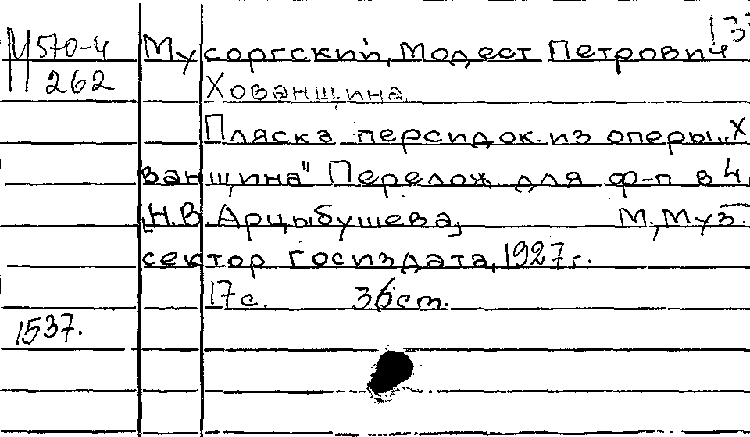 М 570-4 Мусоргский, Модест Петрович
262 Хованщина
Пляска персидок из оперы „Х
ванщина" Перелож для ф-п в 4
Н.В. Арцыбушева, М, Муз.
сектор Госиздата, 1927 г.
17 с. 36 ст.
1537.